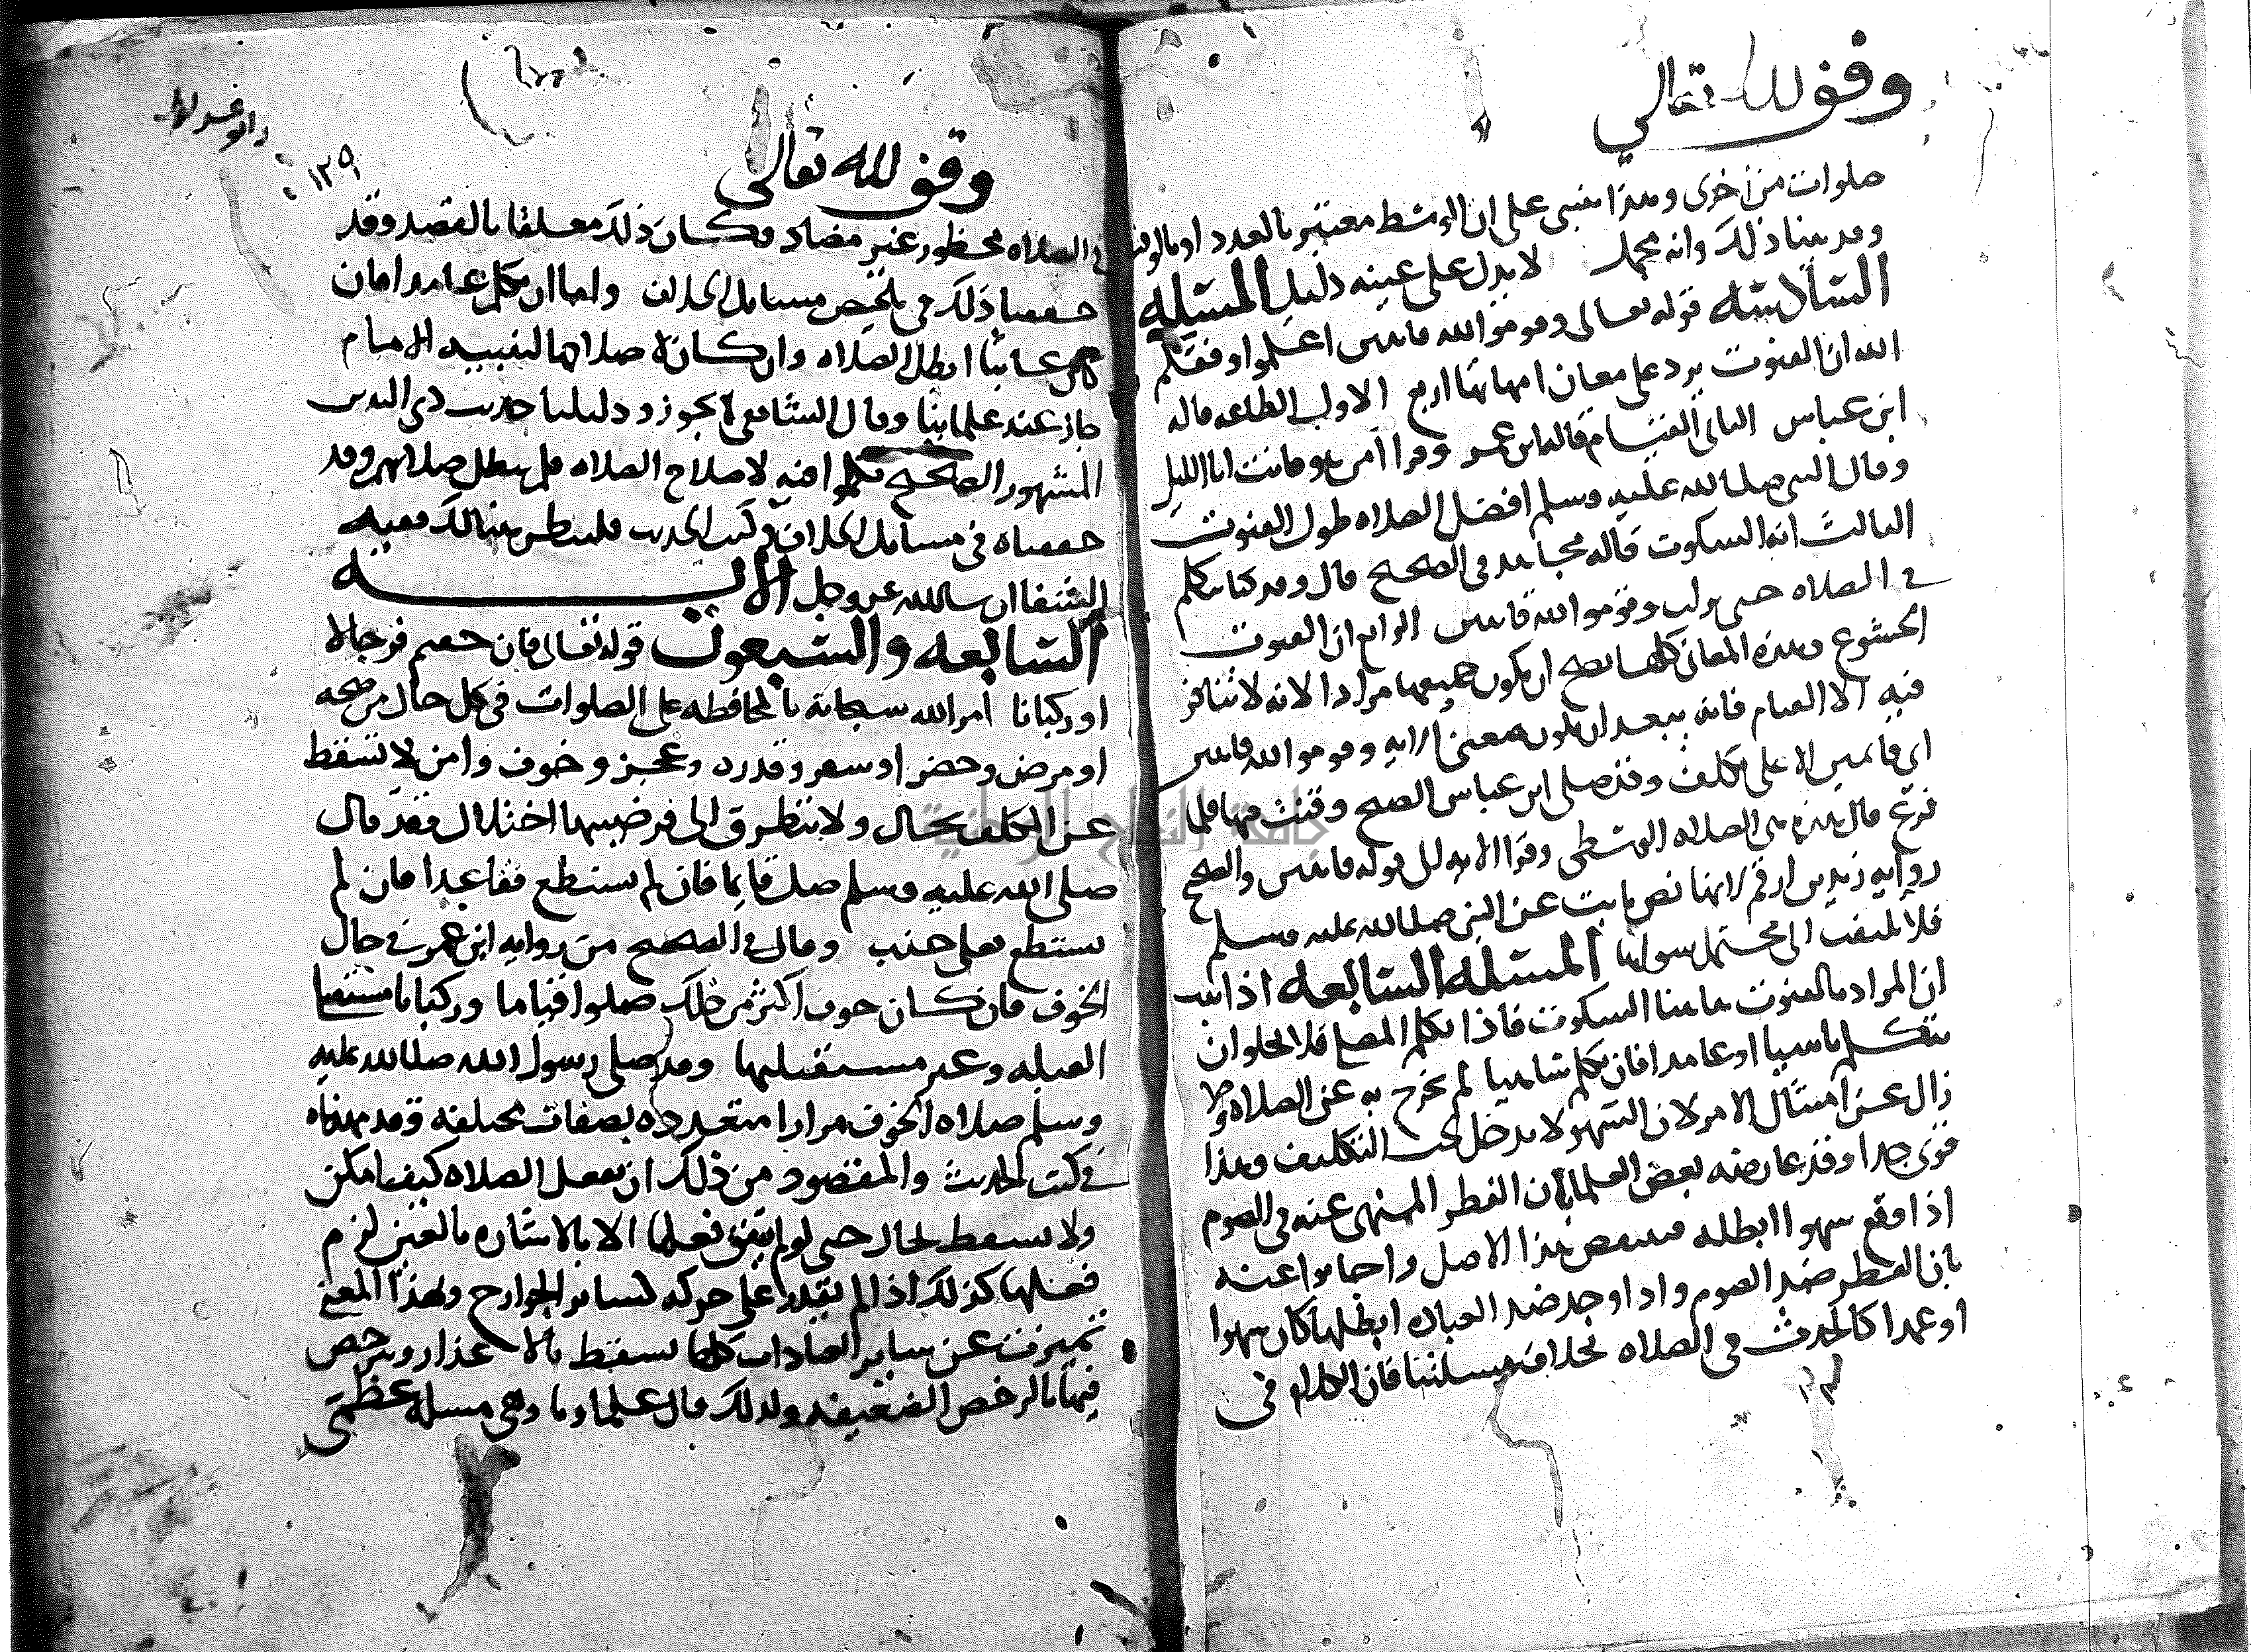 وقف لله تعالى
صلوات من اخرى وهذا ينبنى على ان الوسط معتبر بالعدد او بالوقت
وقد بينا ذلك وانه محمل لا يدل على عينه دليل المسئله
الثالثه قوله تعالى وقوموا لله قانتين اعلموا وفقكم
الله ان القنوت يرد على معان امهاتها اربع الاول الطاعه قاله
ابن عباس الثانى القيام قاله ابن عمر وقرا امن هو قانت انا الليل
وقال النبى صلى الله عليه وسلم افضل الصلاه طول القنوت
الثالث انه السكوت قاله مجاهد وفى الصحيح قال وقد كنا نتكلم
فى الصلاه حتى نزلت وقوموا لله قانتين الرابع ان القنوت
الخشوع وهذه المعانى كلها يصح ان يكون جميعها مرادا لانه لا تنافر
فيه الا القيام فانه يبعد ان يكون معنى الايه وقوموا لله قانتين
اى قائمين الا على تكلف وقد صلى ابن عباس الصبح وقنت فيها فلما
فرغ قال هذه هى الصلاه الوسطى وقرا الايه الى قوله قانتين والصحيح
روايه زيد بن ارقم لانها نص ثابت عن النبى صلى الله عليه وسلم
فلا يلتفت الى محتمل سواها المسئله الرابعه اذا ثبت
ان المراد بالقنوت هاهنا السكوت فاذا تكلم المصلى فلا يخلو ان
يتكلم ناسيا او عامدا فان تكلم ساهيا لم يخرج به عن الصلاه ولا
زال عن امتثال الامر لان السهو لا يدخل تحت التكليف وهذا
قوى جدا وقد عارضه بعض العلما بان الفطر المنهى عنه فى الصوم
اذا وقع سهوا ابطله فينقض هذا الاصل واجابوا عنه
بان الفطر ضد الصوم واذا وجد ضد العباده ابطلها كان سهوا
او عمدا كالحدث فى الصلاه بخلاف مسئلتنا فان الكلام فى
وقف لله تعالى
١٣٩
فى الصلاه محظور غير مضاد فكان ذلك معلقا بالقصد وقد
حققنا ذلك فى تلخيص مسائل الخلاف واما ان تكلم عامدا فان
كان عابثا ابطل الصلاه وان كان لاصلاحها لتنبيه الامام
جاز عند علمائنا وقال الشافعى لا يجوز ودليلنا حديث ذى اليدين
المشهور الصحيح تكلموا فيه لاصلاح الصلاه فلم يبطل صلاتهم وقد
حققناه فى مسائل الخلاف وكتب الحديث فلينظر هنالك ففيه
الشفا ان شا الله عز وجل الايـــــــه
السابعه والسبعون قوله تعالى فان خفتم فرجالا
او ركبانا امر الله سبحانه بالمحافظه على الصلوات فى كل حال من صحه
او مرض وحضر او سفر وقدره وعجز وخوف وامن لا تسقط
عن المكلف بحال ولا يتطرق الى فرضيتها اختلال فقد قال
صلى الله عليه وسلم صل قايما فان لم تستطع فقاعدا فان لم
تستطع فعلى جنب وقال فى الصحيح من روايه ابن عمر فى حال
الخوف فان كان خوف اكثر من ذلك صلوا قياما وركبانا مستقبلى
القبله وغير مستقبليها وقد صلى رسول الله صلى الله عليه
وسلم صلاه الخوف مرارا متعدده بصفات مختلفه وقد مهدناه
فى كتب الحديث والمقصود من ذلك ان تفعل الصلاه كيف امكن
ولا تسقط بحال حتى لو لم يتفق فعلها الا بالاشاره بالعين لزم
فعلها كذلك اذا لم يقدر على حركه لسائر الجوارح وبهذا المعنى
تميزت عن ساير العبادات كلها تسقط بالاعذار ويترخص
فيها بالرخص الضعيفه ولذلك قال علماونا وهى مسئله عظمى